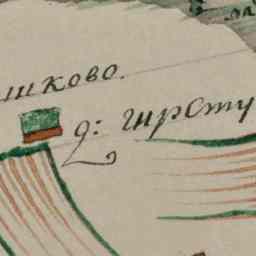 шково.
д: гирсту